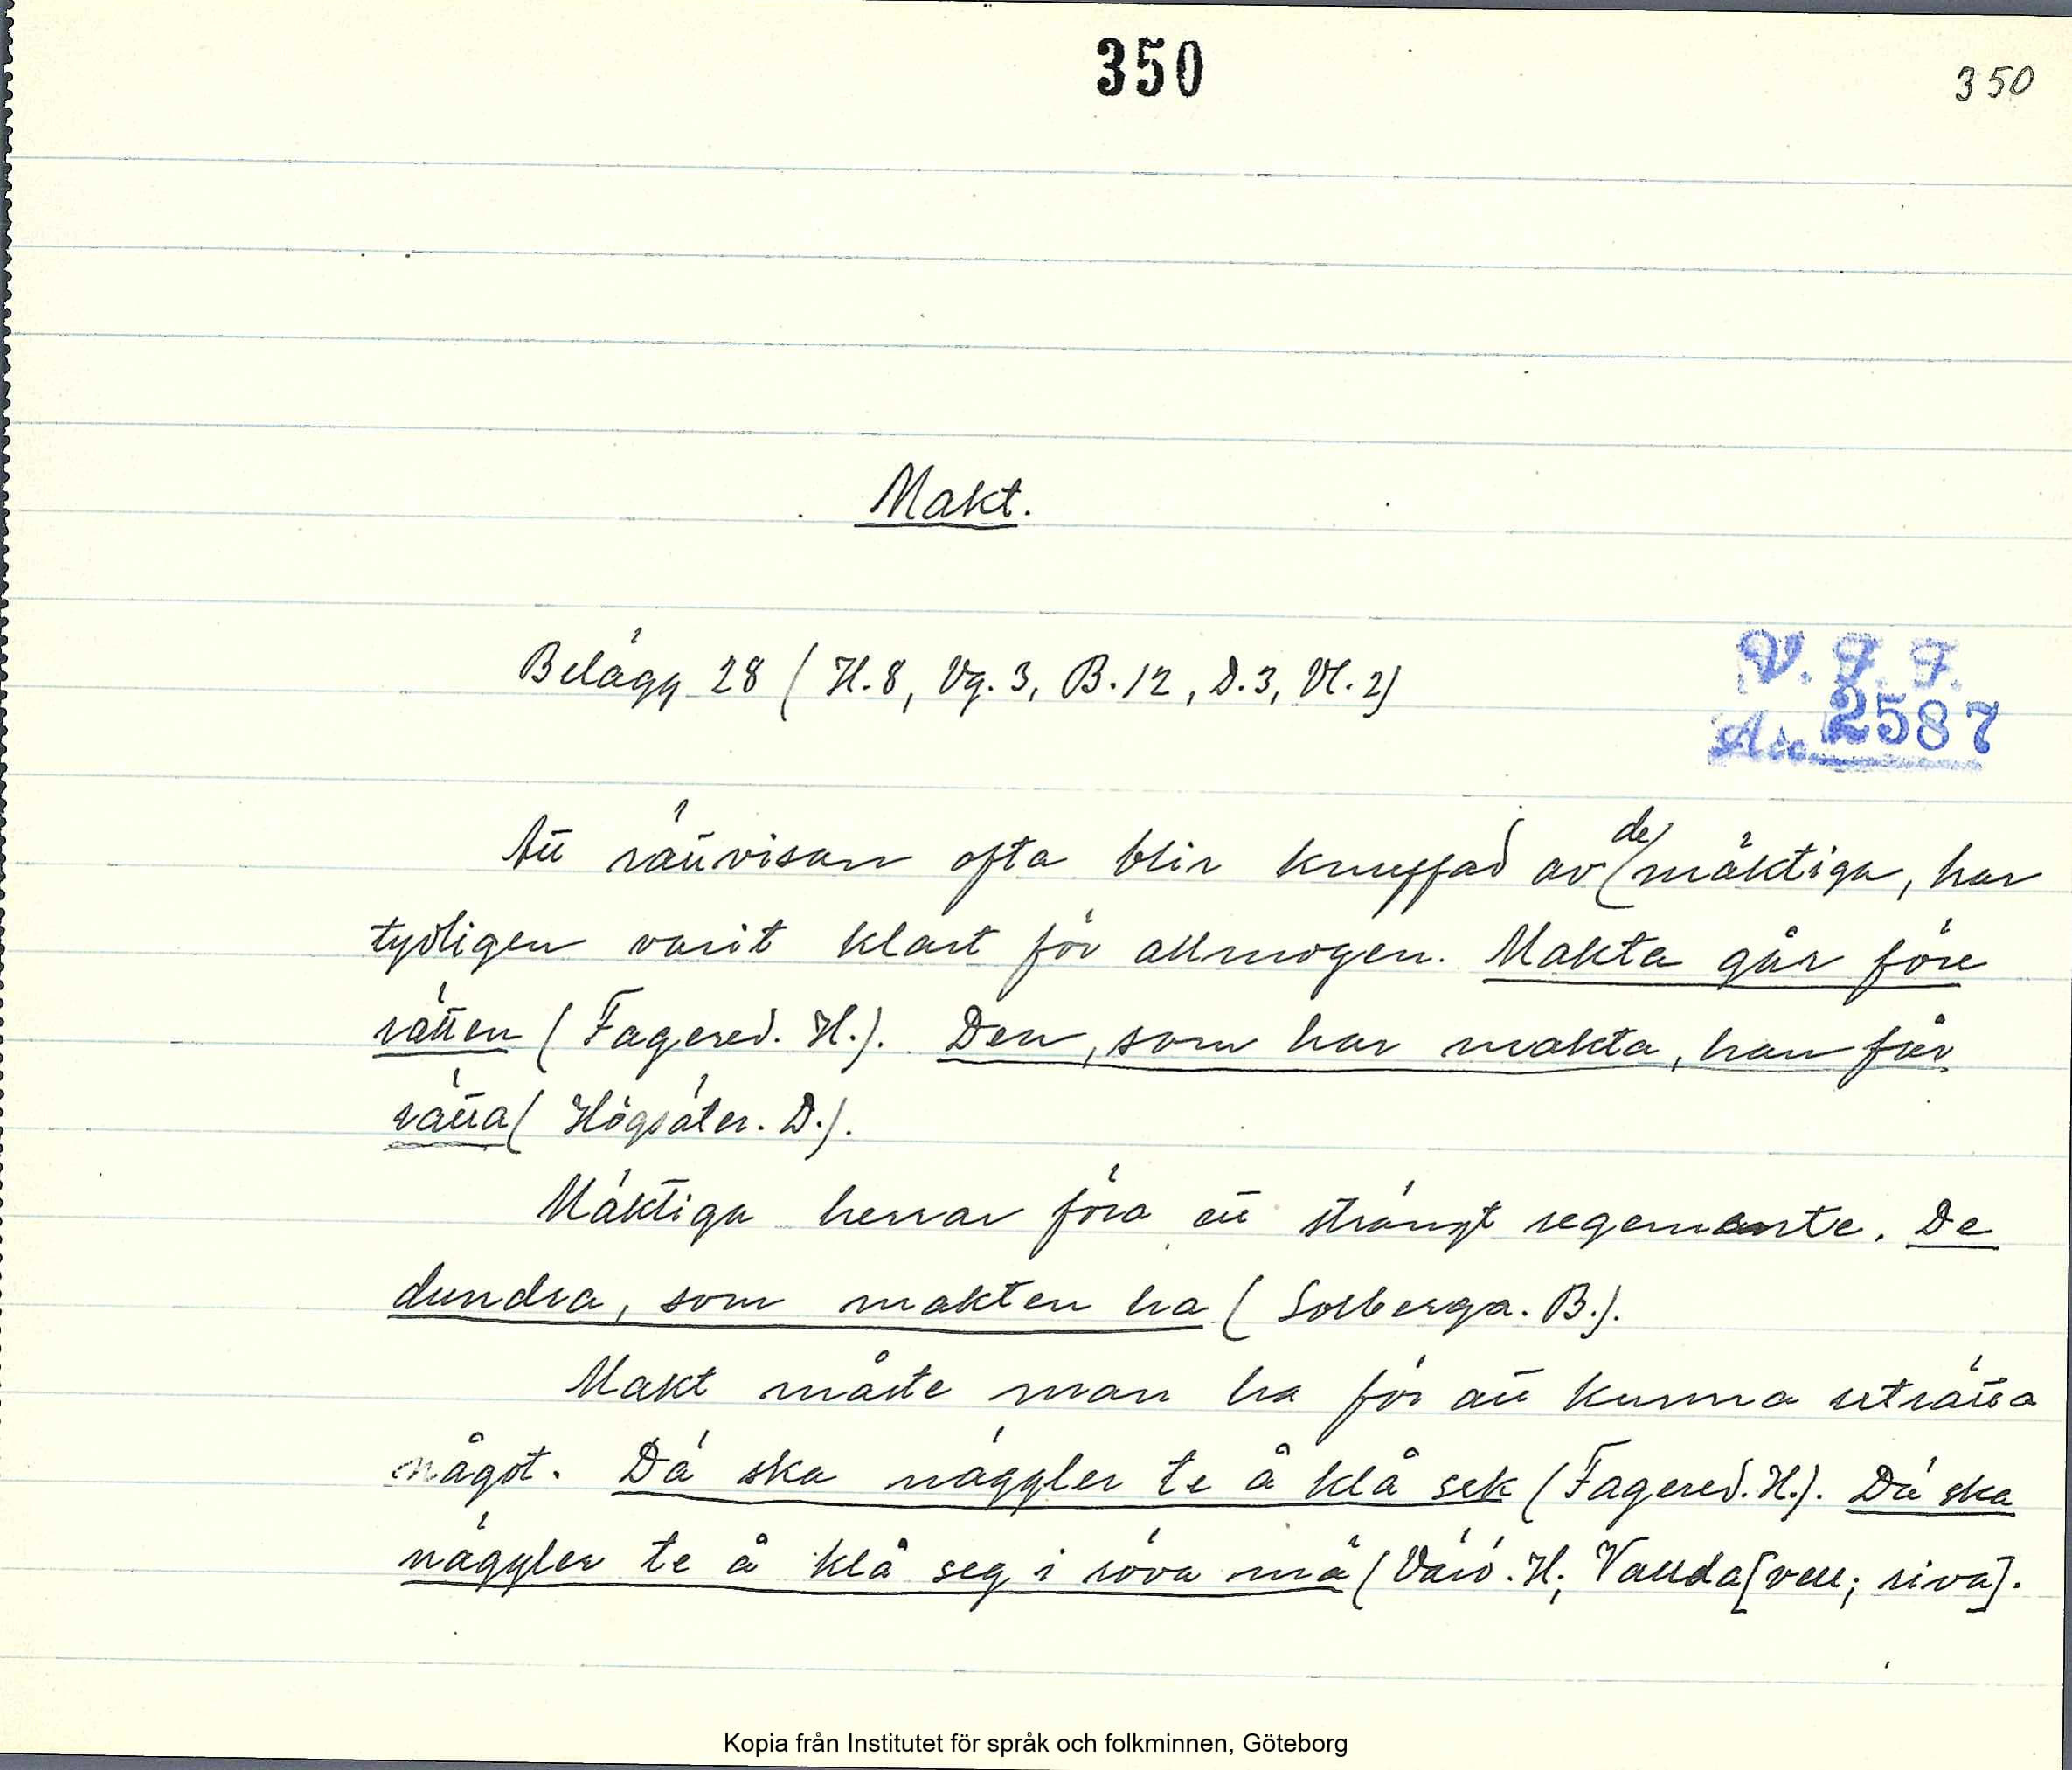 350
350
Makt.
Belägg 28 (H. 8, Vg. 3, B. 12, D. 3, Vl. 2)
V. F. F.
Acc. 2587
Att rättvisan ofta blir knuffad av de mäktiga, har
tydligen varit klart för allmogen. Makta går före
rätten (Fagered. H.). Den, som har makta, han får
rätta (Högsäter. D.).
Mäktiga herrar föra ett strängt regemente. De
dundra, som makten ha (Solberga. B.).
Makt måste man ha för att kunna uträtta
något. Dä ska näggler te å klå sek (Fagered. H.). Dä ska
näggler te å klå seg i röva mä (Värö. H; Vallda [vell; riva].
Kopia från Institutet för språk och folkminnen, Göteborg